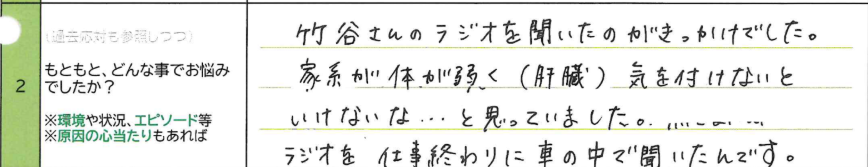 (過去応対も参照しつつ)
2
もともと、どんな事でお悩み
でしたか?
※環境や状況、エピソード等
※原因の心当たりもあれば
竹谷さんのラジオを聞いたのがきっかけでした。
家系が体が弱く(肝臓)気を付けないと
いけないな…と思っていました。
ラジオを仕事終わりに車の中で聞いたんです。